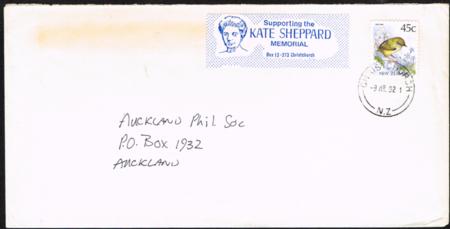 Supporting the
KATE SHEPPARD
MEMORIAL
Box 13-273 Christchurch
45c
NEW ZEALAND
N.Z.
AUCKLAND Phil. Soc
P.O. Box 1932
AUCKLAND